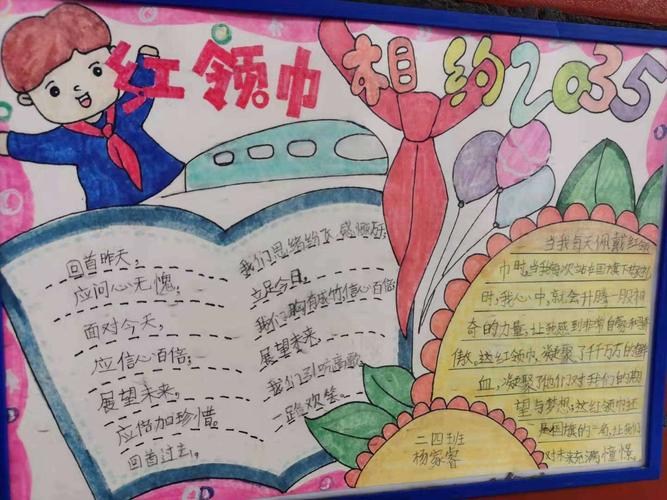 红领巾 相约2035
回首昨天,
应问心无愧,
面对今天,
应信心百倍,
展望未来,
应倍加珍惜。
回首过去,
我们思绪纷飞,感慨万
立足今日,
我们胸有成竹,信心百倍
展望未来,
我们引吭高歌
一路欢笑。
当我每天佩戴红领
巾时,当我每次站在国旗下
时,我心中,就会升腾一股神
奇的力量,让我感到非常自豪和骄
傲,这红领巾,凝聚了千千万万的鲜
血,凝聚了他们对我们的期
望与梦想;这红领巾还
是国旗的一角,让我们
对未来充满憧憬。
二四班
杨家睿